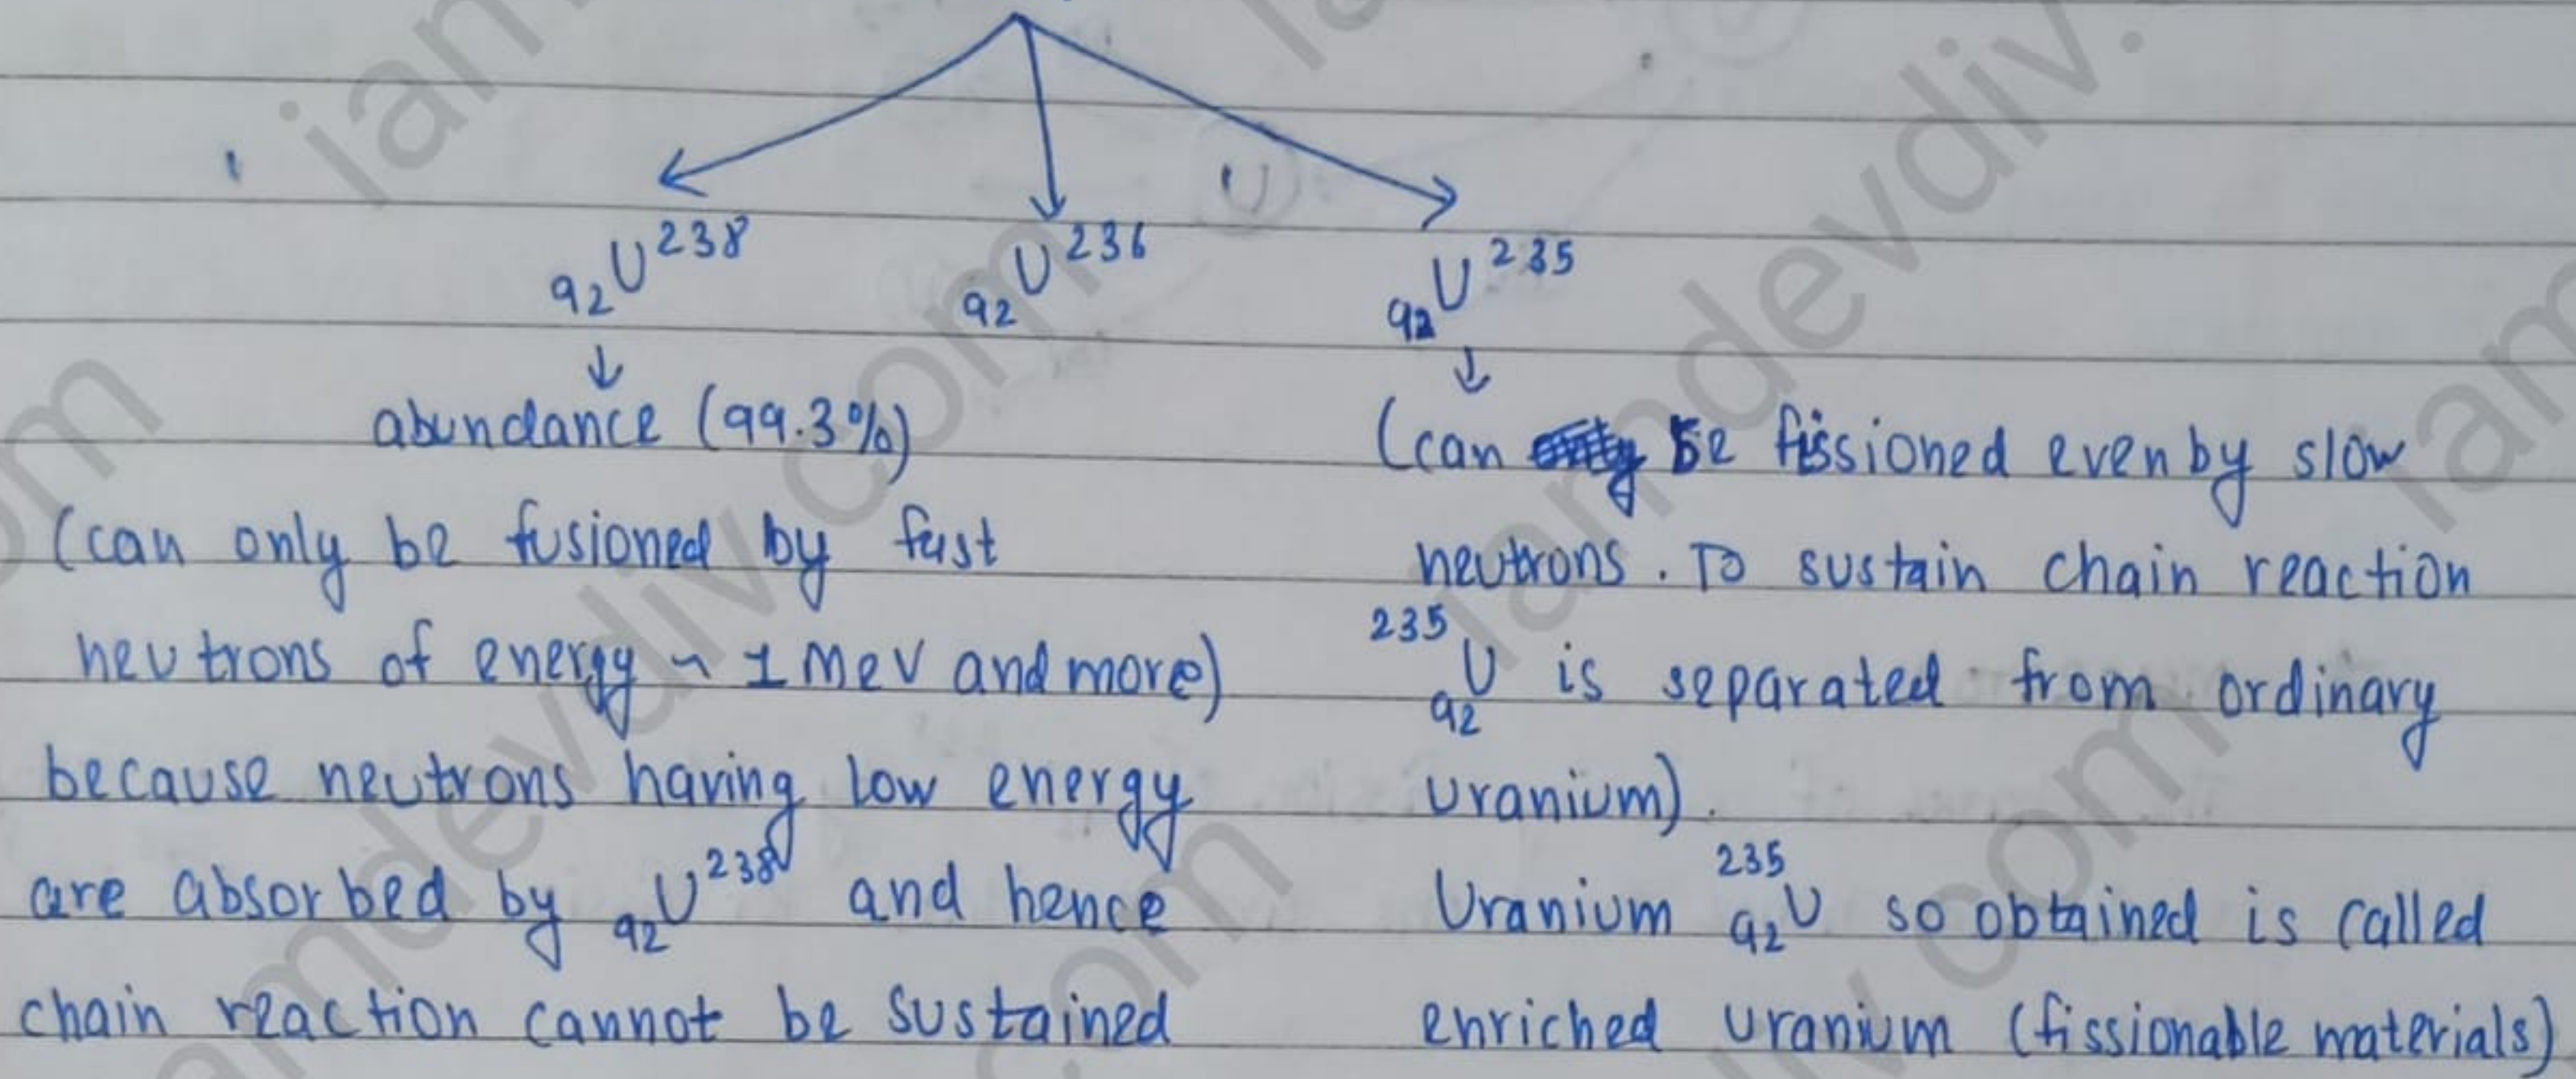 92U238 92U236 92U235
abundance (99.3%)
(can only be fusioned by fast
neutrons of energy ~ 1 MeV and more)
because neutrons having low energy
are absorbed by 92U238 and hence
chain reaction cannot be sustained
(can be fissioned even by slow
neutrons. To sustain chain reaction
235 92U is separated from ordinary
uranium).
Uranium 235 92U so obtained is called
enriched uranium (fissionable materials)
iamdevdiv.com